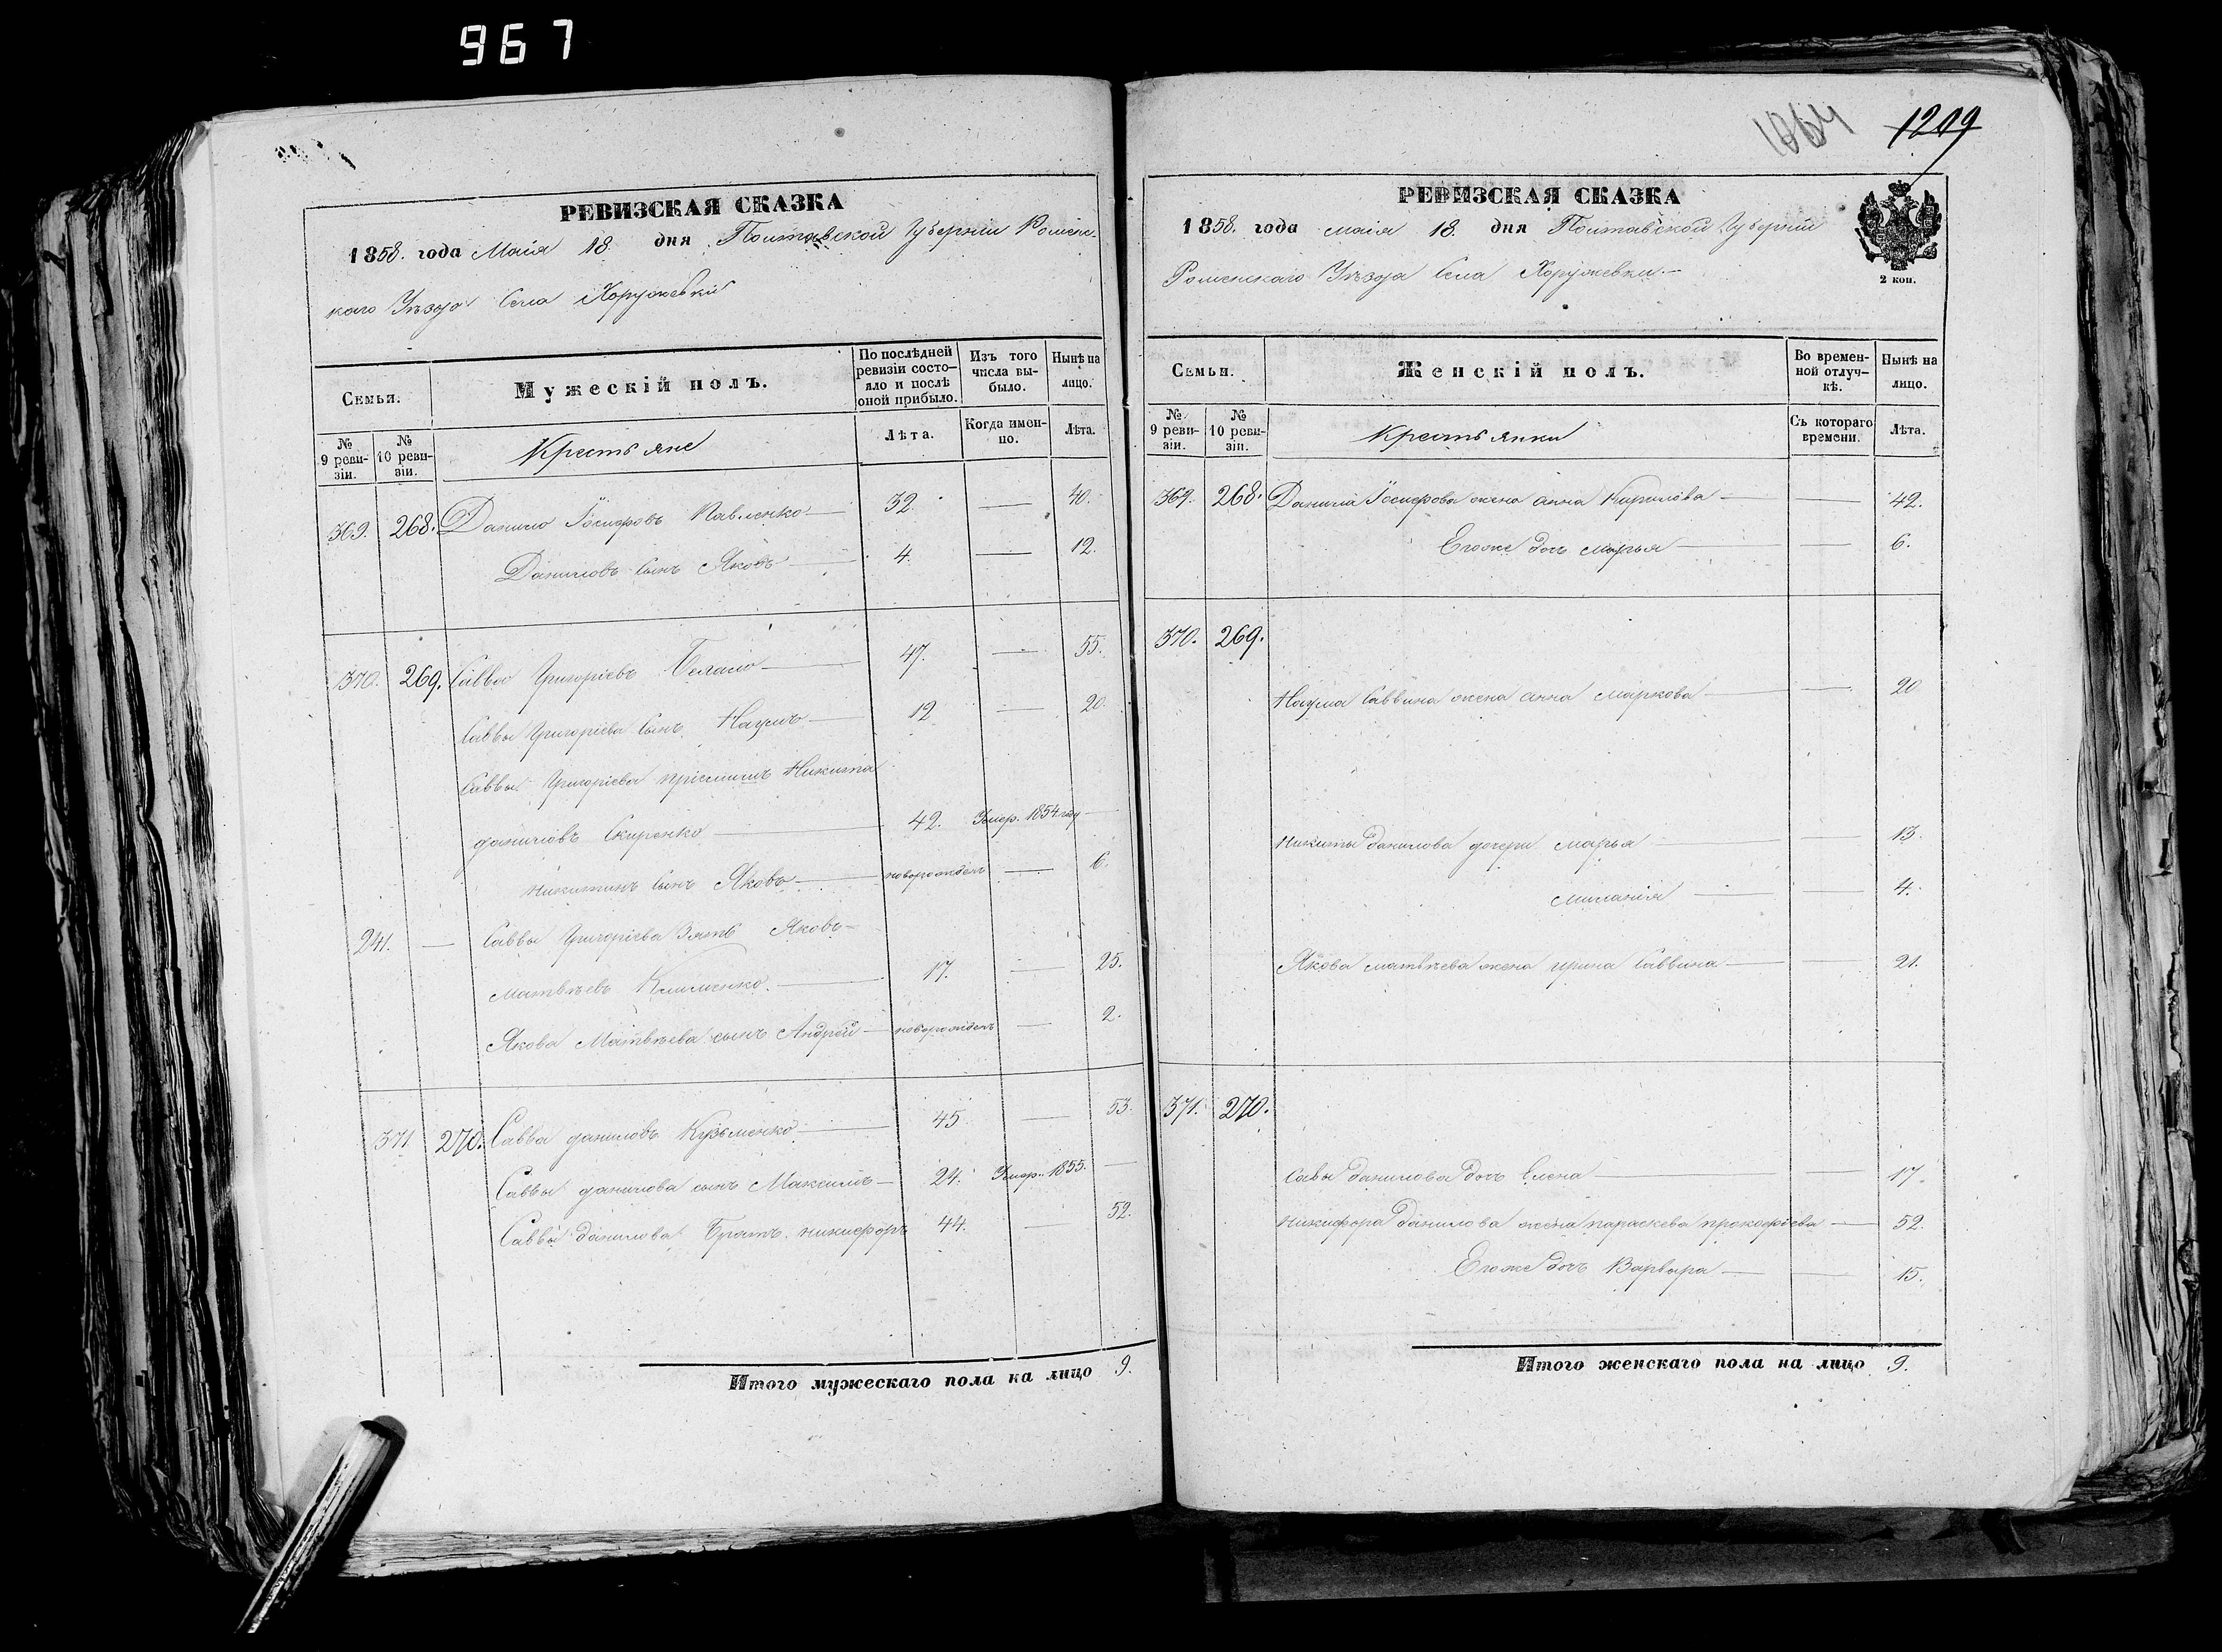 967
РЕВИЗСКАЯ СКАЗКА
1858. года Маія 18. дня Полтавской Губерніи Роменс-
каго Уѣзда Села Хоружевки
Семьи. Мужескій полъ. По послѣдней ревизіи состо-яло и послѣ оной прибыло. Изъ того числа вы-было. Нынѣ на лицо.
№ 9 реви-зіи. № 10 реви-зіи. Крестьяне Лѣта. Когда имен-но. Лѣта.
369. 268. Данило Іосифовъ Павленко 32. 40.
Даниловъ Сынъ Яковъ 4. 12.
370. 269. Савва Григоріевъ 47. 55.
Саввы Григоріева Сынъ Наумъ 12 20.
Саввы Григоріева пріемышъ Никита
Даниловъ Скиренко 42. Умер. 1854 году
Никитинъ Сынъ Яковъ новорожденъ 6.
241. Саввы Григоріева Зять Яковъ
Матвѣевъ Клименко. 17. 25.
Якова Матвѣева сынъ Андрей новорожденъ 2.
371 270. Савва Даниловъ Кузьменко 45 53.
Саввы Данилова сынъ Максимъ 24. Умер. 1855.
Саввы Данилова Братъ Никифоръ 44. 52.
Итого мужескаго пола на лицо 9.
1064 1209
РЕВИЗСКАЯ СКАЗКА
1858. года маія 18. дня Полтавской Губерніи
Роменскаго Уѣзда Села Хоружевки
2 коп.
Семьи. Женскій полъ. Во времен-ной отлуч-кѣ. Нынѣ на лицо.
№ 9 реви-зіи. № 10 реви-зіи. Крестьянки Съ котораго времени. Лѣта.
369. 268. Данила Іосифова жена Анна Кирилова 42.
Егоже дочь Марья 6.
370. 269.
Наума Саввина жена Анна Маркова 20
Никиты Данилова дочери Марья 13.
Миланія 4.
Якова Матвѣева жена Ирина Саввина 21.
371. 270.
Савы Данилова дочь Елена 17.
Никифора Данилова жена Параскева Прокофіева 52.
Егоже дочь Варвара 15.
Итого женскаго пола на лицо 9.